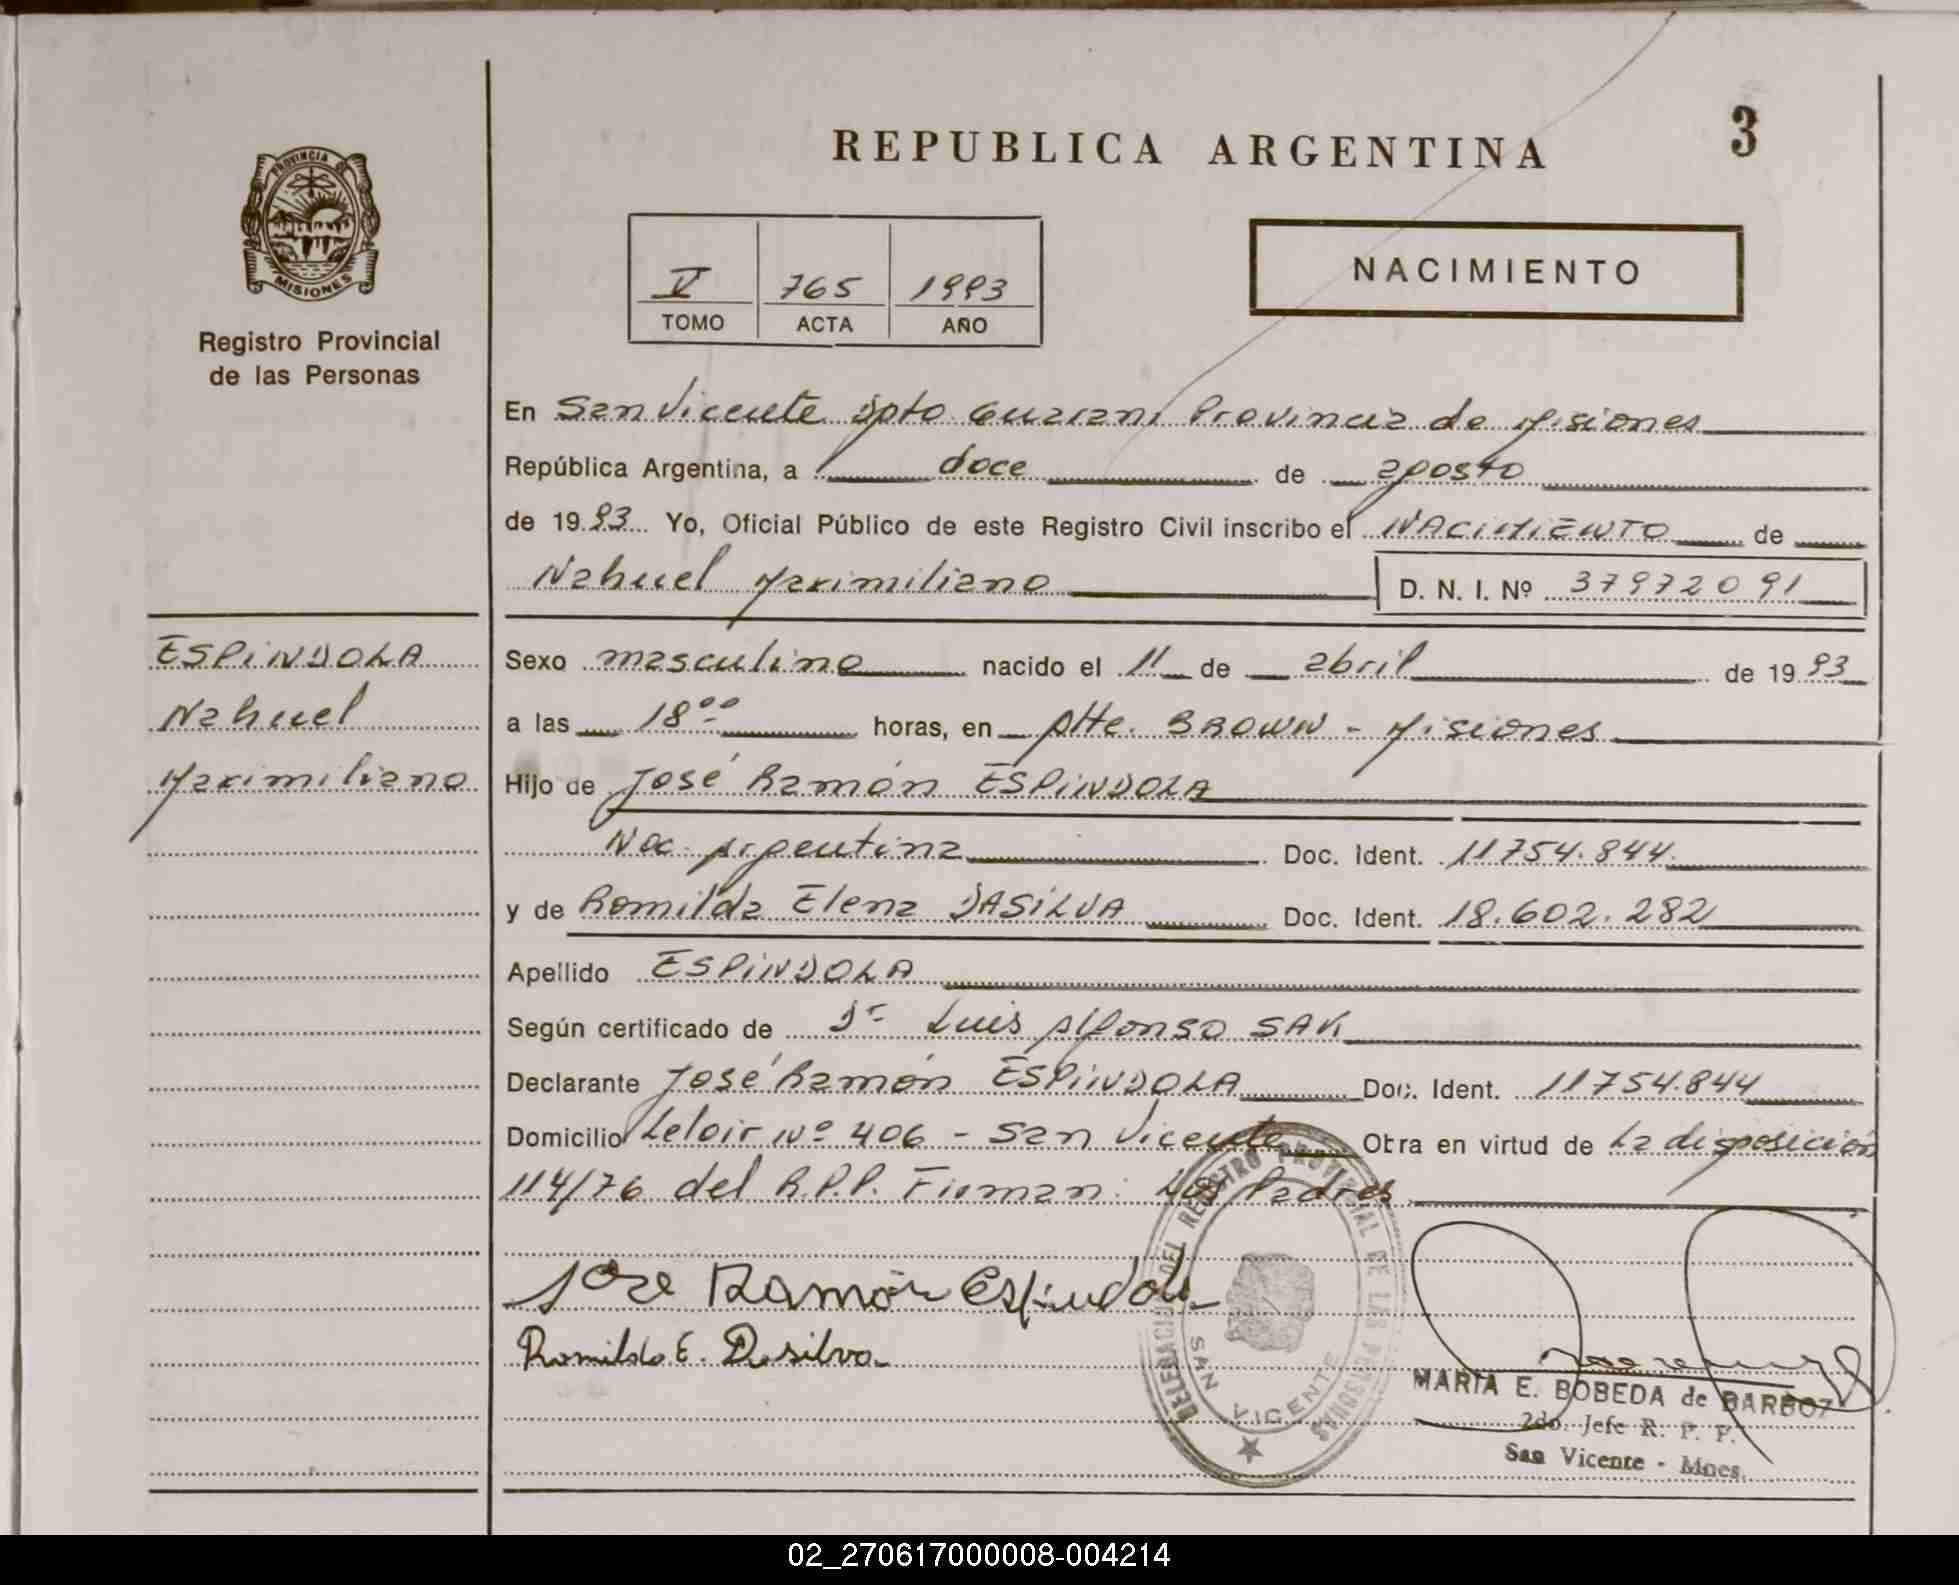 REPUBLICA ARGENTINA
3
PROVINCIA DE
MISIONES
Registro Provincial
de las Personas
V 765 1993
TOMO ACTA AÑO
NACIMIENTO
En San Vicente Dpto Guaraní Provincia de Misiones
República Argentina, a doce de agosto
de 1993 Yo, Oficial Público de este Registro Civil inscribo el NACIMIENTO de
Nahuel Maximiliano D. N. I. Nº 37972091
ESPINDOLA
Nahuel
Maximiliano
Sexo masculino nacido el 11 de abril de 1993
a las 18⁰⁰ horas, en Alte. BROWN - Misiones
Hijo de José Ramón ESPINDOLA
Nac. Argentina Doc. Ident. 11754.844
y de Romilda Elena DASILVA Doc. Ident. 18.602.282
Apellido ESPINDOLA
Según certificado de Dr Luis Alfonso SAK
Declarante José Ramón ESPINDOLA Doc. Ident. 11754.844
Domicilio Leloir Nº 406 - San Vicente Obra en virtud de La disposición
114/76 del R.P.P. Firman: Los Padres
Jose Ramón Espindola
Romilda E. Dasilva
DELEGACION DEL REGISTRO PROVINCIAL DE LAS PERSONAS
SAN VICENTE
MARIA E. BOBEDA de BARBOZ
2do. Jefe R. P. P.
San Vicente - Mnes.
02_270617000008-004214